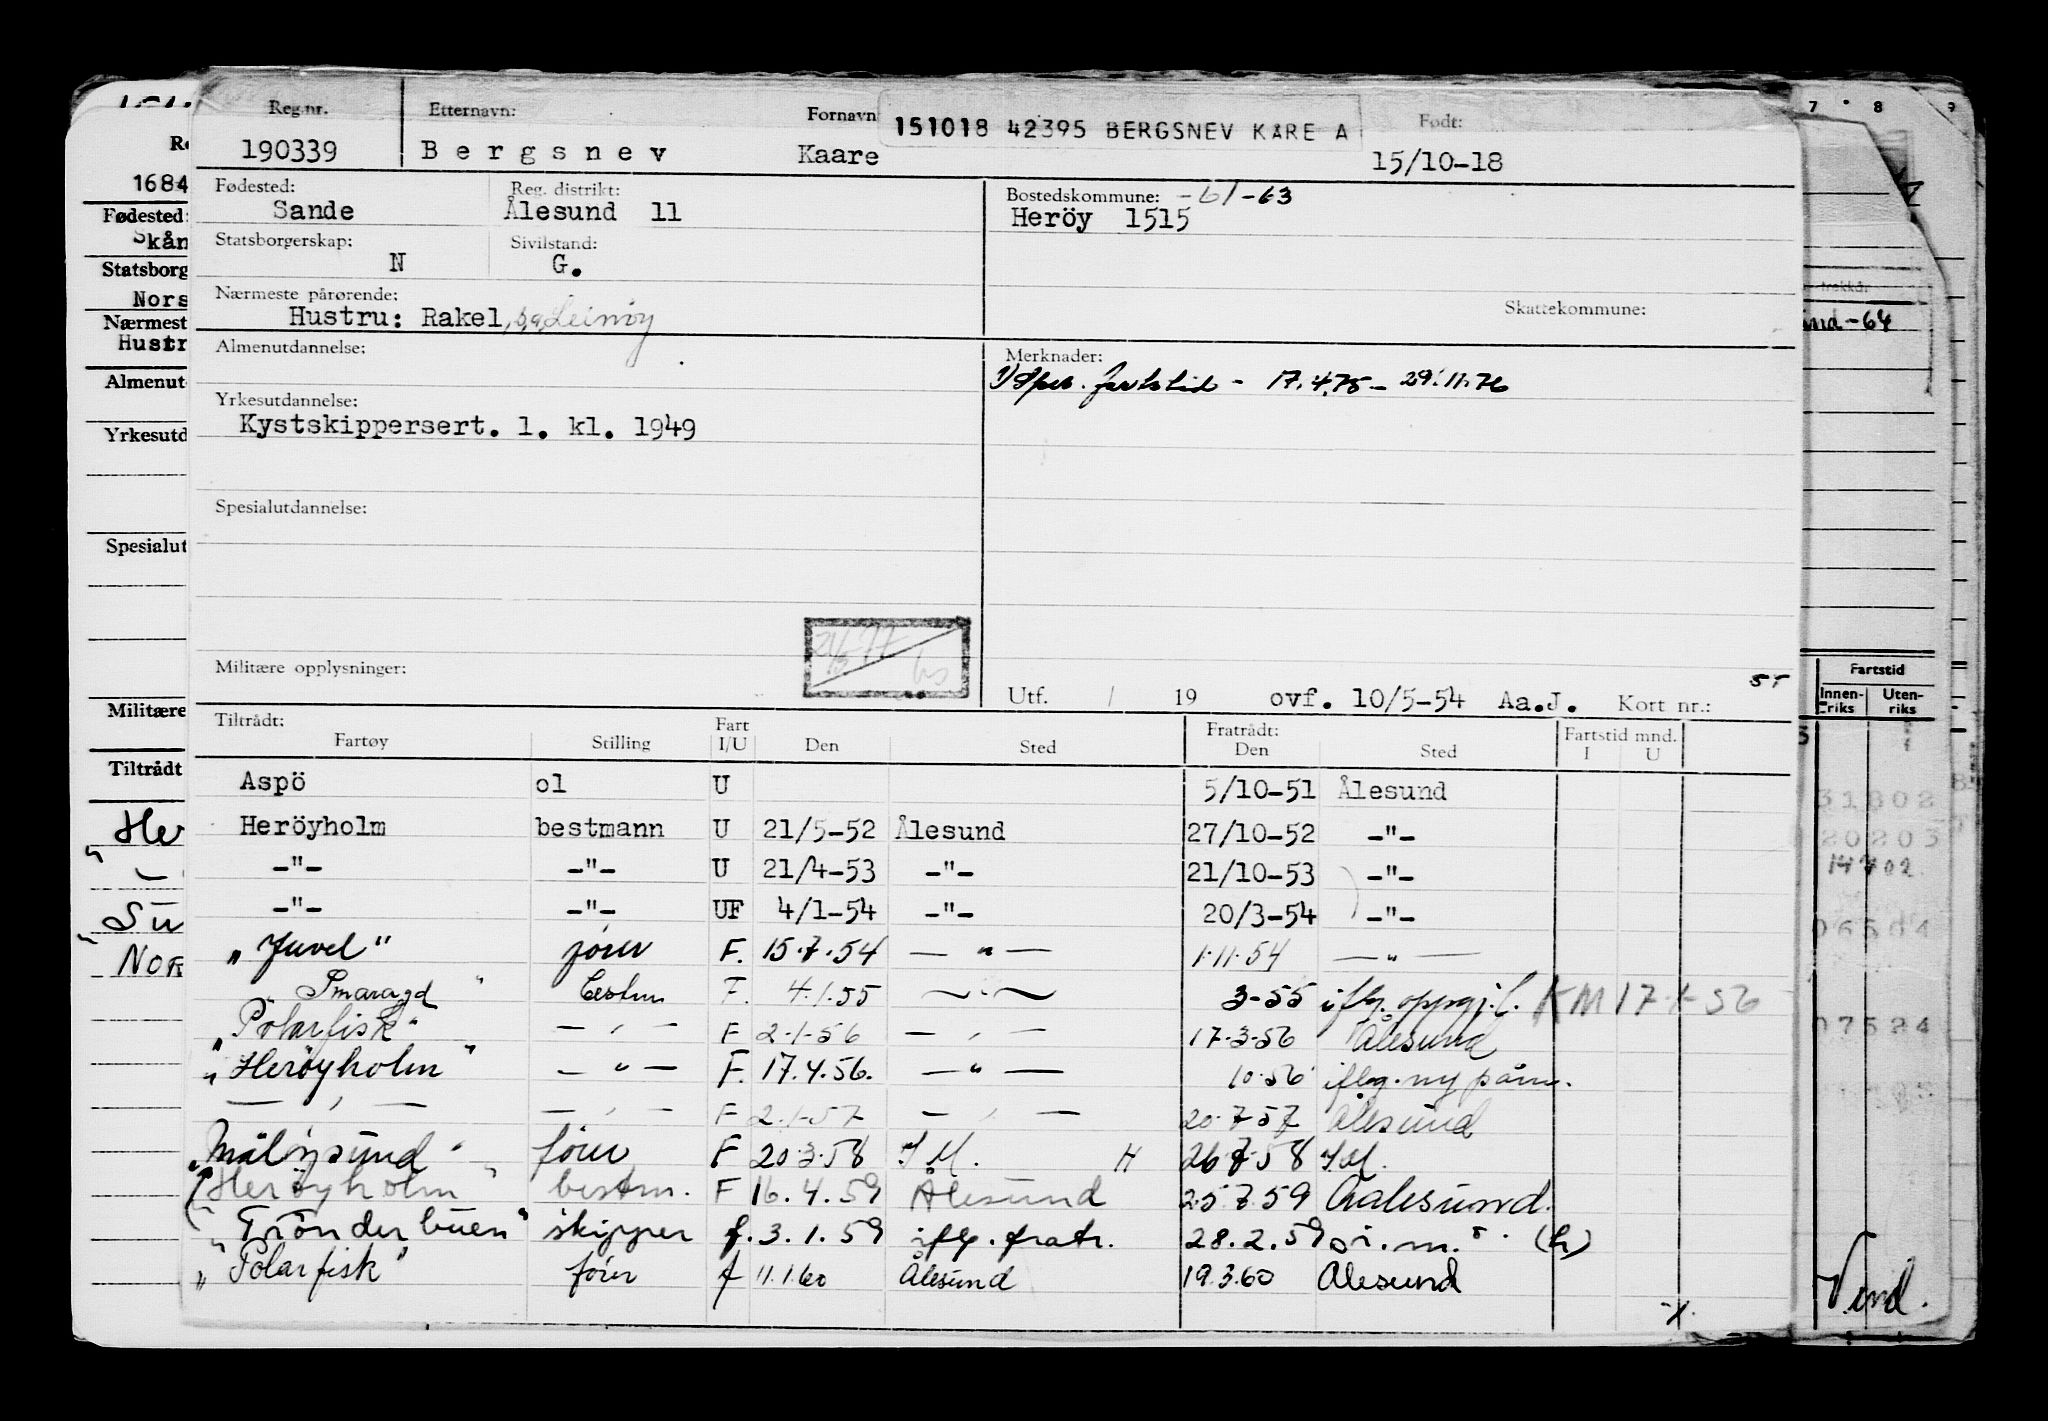 Reg.nr. Etternavn: Fornavn 151018 42395 BERGSNEV KÅRE A Født:
190339 Bergsnev Kaare 15/10-18
Fødested: Reg. distrikt: Bostedskommune: -61-63
Sande Ålesund 11 Heröy 1515
Statsborgerskap: Sivilstand:
N G.
Nærmeste pårørende: Skattekommune:
Hustru: Rakel, s,a, Leinøy
Almenutdannelse: Merknader:
1) Sper. fartstid - 17.4.75 - 29.11.76
Yrkesutdannelse:
Kystskippersert. 1. kl. 1949
Spesialutdannelse:
Militære opplysninger:
Utf. / 19 ovf. 10/5-54 Aa.J. Kort nr.: ST
Tiltrådt: Fart Fratrådt: Fartstid mnd.
Fartøy Stilling I/U Den Sted Den Sted I U
Aspö ol U 5/10-51 Ålesund
Heröyholm bestmann U 21/5-52 Ålesund 27/10-52 -"-
-"- -"- U 21/4-53 -"- 21/10-53 -"-
-"- -"- UF 4/1-54 -"- 20/3-54 -"-
"Juvel" fører F. 15.7.54 — " — 1.11.54 — " —
Smaragd " bestm F. 4.1.55 3-55 iflg. oppgj.l. KM 17-1-56
"Polarfisk" — , — F 2-1-56 — , — 17-3-56 Ålesund
"Herøyholm" — " — F. 17.4.56. — " — 10.56 iflg. ny påm.
— , — — , — F 2.1-57 — , — 20.7-57 Ålesund
"Måløysund" fører F 20.3.58 I.M. H 26.7.58 I.M.
"Herøyholm" bestm. F 16.4.59 Ålesund 25.7.59 Aalesund.
"Trönderbuen" skipper f. 3.1.59 iflg. fratr. 28.2.59 (h)
"Polarfisk" fører f 11.1.60 Ålesund 19.3.60 Ålesund
1684
Fødested:
Skån
Statsborg
Nors
Nærmest
Hustr
Almenut
Yrkesutd
Spesialut
Militære
Tiltrådt
Her
Su
Nor
7 8 9
-64
Fartstid
Innenriks Utenriks
31802
20203
14702
06504
07524
Vend.